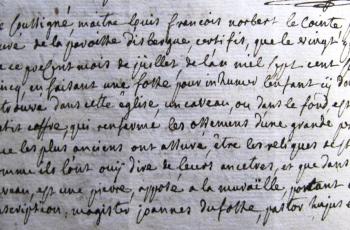 soussigné, maitre louis francois norbert le Comte,
de la paroisse disbergue, certifie, que le vingt
ce present mois de juillet de lan mil sept cent
cinq, en faisant une fosse pour inhumer lenfant cy
trouve dans cette eglise, un caveau, ou dans le fond est
petit coffre, qui renferme les ossemens d'une grande
que les plus anciens ont assuré, être les reliques de
comme ils l'ont ouy dire de leurs ancetres, et que dans
caveau, est une pierre, apposé a la muraille portant
inscription, magister joannes du fosse, pastor hujus